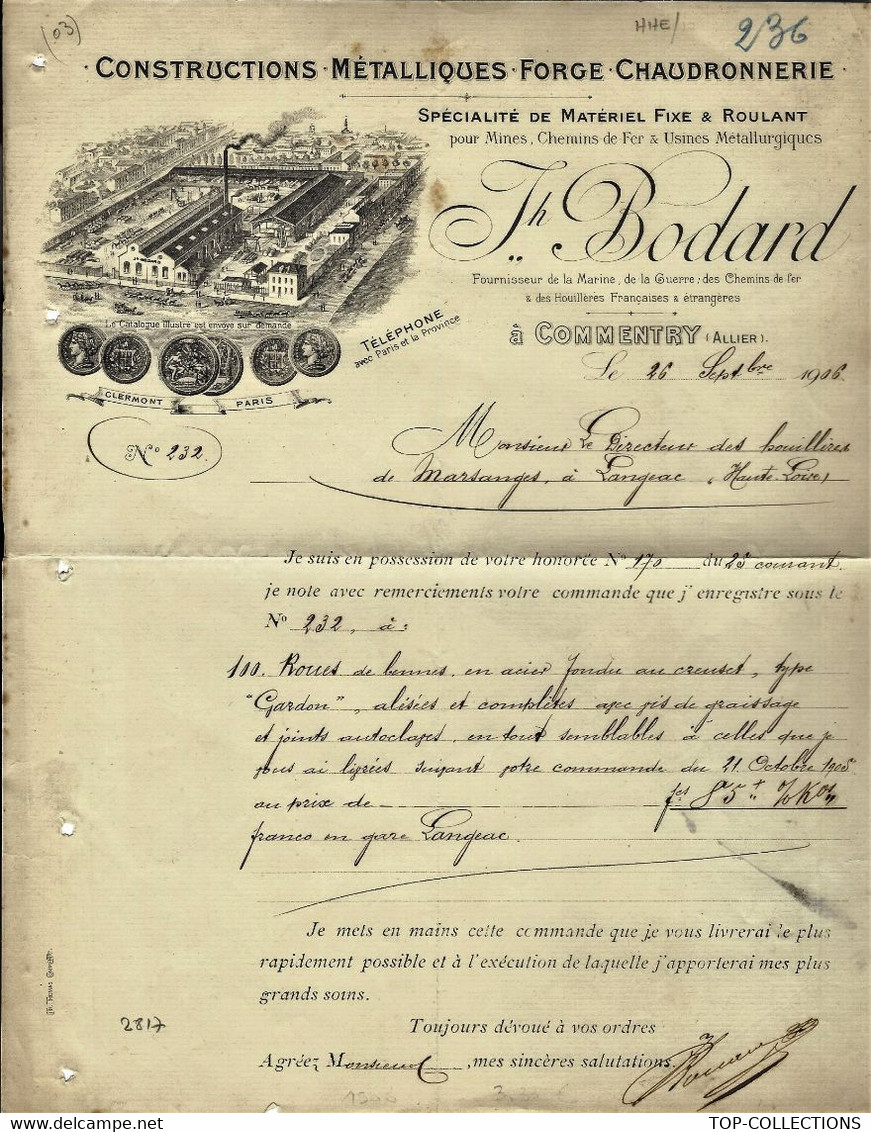 (03)
HHE/
236
CONSTRUCTIONS · MÉTALLIQUES · FORGE · CHAUDRONNERIE
SPÉCIALITÉ DE MATÉRIEL FIXE & ROULANT
pour Mines, Chemins de Fer & Usines Métallurgiques
Jh Bodard
Fournisseur de la Marine, de la Guerre, des Chemins de fer
& des Houillères Françaises & étrangères
Le Catalogue Illustré est envoyé sur demande
TÉLÉPHONE
avec Paris et la Province
à COMMENTRY (ALLIER).
CLERMONT PARIS
Le 26 Septbre 1906
No 232.
Monsieur Le Directeur des houillères
de Marsanges, à Langeac (Haute-Loire)
Je suis en possession de votre honorée No 170 du 25 courant
je note avec remerciements votre commande que j'enregistre sous le
No 232, à:
100 Roues de bennes, en acier fondu au creuset, type
"Gardon", alisées et complètes avec vis de graissage
et joints autoclaves, en tout semblables à celles que je
vous ai livrées suivant votre commande du 21 Octobre 1905
au prix de fcs 85 % Kos
franco en gare Langeac.
Je mets en mains cette commande que je vous livrerai le plus
rapidement possible et à l'exécution de laquelle j'apporterai mes plus
grands soins.
2817
Toujours dévoué à vos ordres
Agréez Monsieur, mes sincères salutations.
TOP-COLLECTIONS